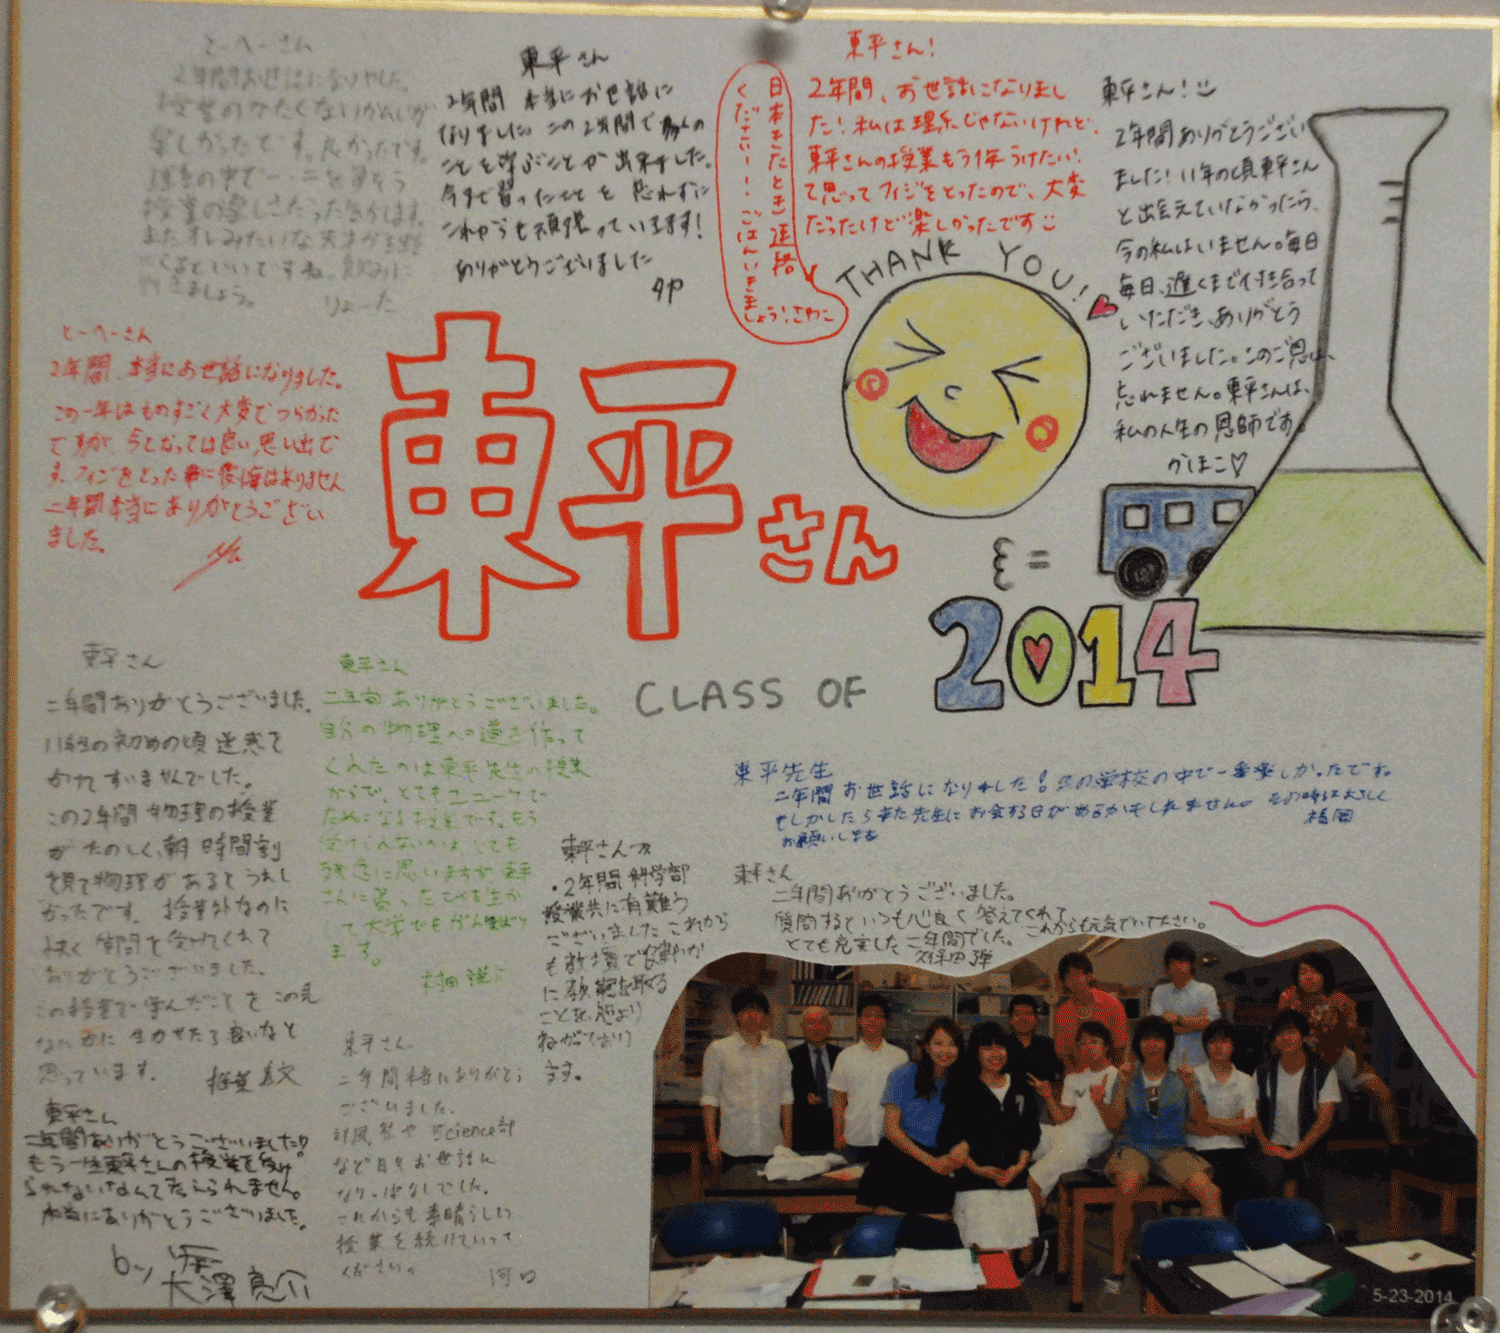 とーへーさん
2年間お世話になりやした。
楽しかったです。良かったです。
行きましょう。
りょーた
東平さん
2年間 本当にお世話に
なりました。この2年間で多くの
ことを学ぶことが出来ました。
今まで習ったことを忘れずに
これからも頑張っていきます!
ありがとうございました
タヤ
日本きたとき連絡
ください!!ごはんいきま
しょう!さわこ
東平さん!
2年間、お世話になりまし
た!私は理系じゃないけれど、
東平さんの授業もう1年うけたい!
て思ってフィジをとったので、大変
だったけど楽しかったです
東平さん!
2年間ありがとうござい
ました!11年の頃東平さん
と出会えていなかったら、
今の私はいません。毎日
毎日、遅くまで付き合って
いただき、ありがとう
ございました。このご恩は、
忘れません。東平さんは、
私の人生の恩師です。
かほこ♡
THANK YOU!
とーへーさん
2年間、本当にお世話になりました。
この一年はものすごく大変でつらかった
ですが、今となっては良い思い出で
す。フィジをとった事に後悔はありません
二年間本当にありがとうござい
ました。
東平さん
CLASS OF 2014
東平さん
二年間ありがとうございました。
11年生の初めの頃迷惑を
かけてすいませんでした。
この2年間物理の授業
がたのしく、朝時間割
を見て物理があるとうれし
かったです。授業外なのに
よく質問を受けてくれて
ありがとうございました。
この授業で学んだことをこの先
なにかに生かせたら良いなと
思っています。
東平さん
二年間ありがとうございました。
自分の物理への道を作って
くれたのは東平先生の授業
からで、とてもユニークで
ためになる授業です。もう
受けられないのは、とても
残念に思いますが東平
さんに習ったことを生か
して大学でもがんばり
ます。
村田
東平先生
二年間お世話になりました!この学校の中で一番楽しかったです。
もしかしたらまた先生にお会する日があるかもしれません。その時はよろしく
お願いします
福岡
東平さんへ
・2年間科学部
授業共に有難う
ございました これから
も教壇で
ことを
ます。
東平さん
二年間ありがとうございました。
質問するといつも心良く答えてくれて
とても充実した二年間でした。 これからも元気でいて下さい。
久保田 弾
東平さん
二年間本当にありがとう
ございました。
Science部
など日々お世話に
なりっぱなしでした。
これからも素晴らしい
授業を続けていって
ください。
河口
東平さん
二年間ありがとうございました!!
もう一生東平さんの授業を受け
られないなんて考えられません。
本当にありがとうございました。
by
大澤亮介
5-23-2014